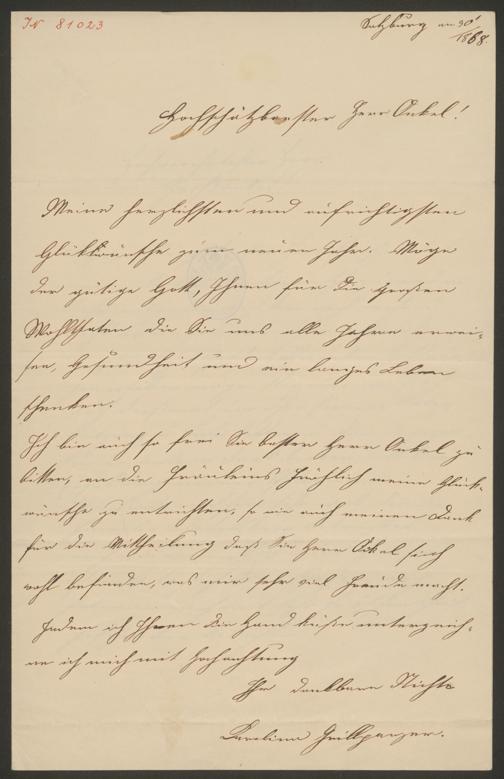 IN 81023
Salzburg am 30/1 1868.
Hochschätzbarster Herr Onkel!
Meine herzlichsten und aufrichtigsten
Glükkwünsche zum neuen Jahr. Möge
der gütige Gott, Ihnen für die großen
Wohlthaten die Sie uns alle Jahre erwei-
sen, Gesundheit und ein langes Leben
schenken.
Ich bin auch so frei Sie bester Herr Onkel zu
bitten, an die Fräuleins Fröhlich meine Glück-
wünsche zu entrichten, so wie auch meinen Dank
für die Mittheilung daß Sie Herr Onkel sich
wohl befinden, was mir sehr viel Freude macht.
Indem ich Ihnen die Hand küße unterzeich-
ne ich mich mit Hochachtung
Ihre dankbare Nichte
Karoline Grillparzer.